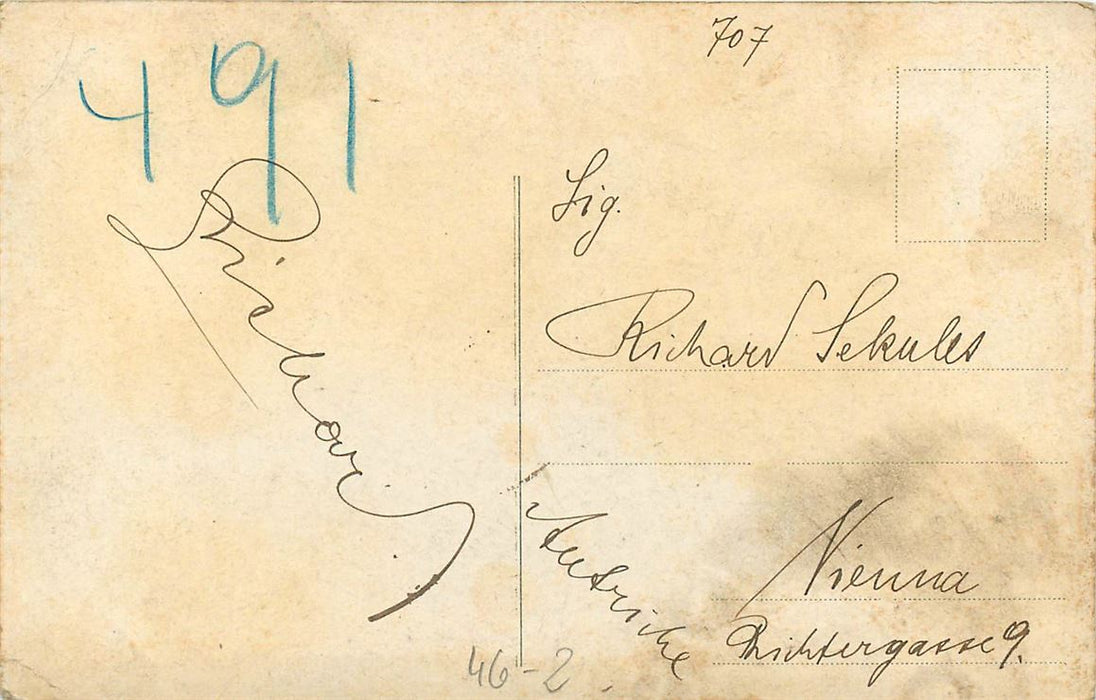 707
491
Richard
Sig.
Richard Sekules
Autriche
Vienna
Richtergasse 9.
46-2